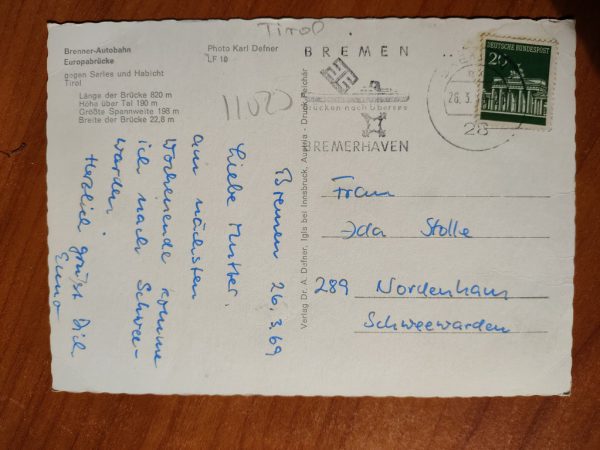 Tirol
Brenner-Autobahn
Europabrücke
gegen Serles und Habicht
Tirol
Länge der Brücke 820 m
Höhe über Tal 190 m
Größte Spannweite 198 m
Breite der Brücke 22,8 m
Photo Karl Defner
LF 10
BREMEN
Brücken nach Übersee
BREMERHAVEN
26.3.
28
DEUTSCHE BUNDESPOST
20
Verlag Dr. A. Defner, Igls bei Innsbruck, Austria - Druck Reichär
Bremen 26.3.69
Liebe Mutter.
am nächsten
Wochenende komme
ich nach Schwee-
warden.
Herzlich grüßt Dich
Enno
Frau
Ida Stolle
289 Nordenham
Schweewarden